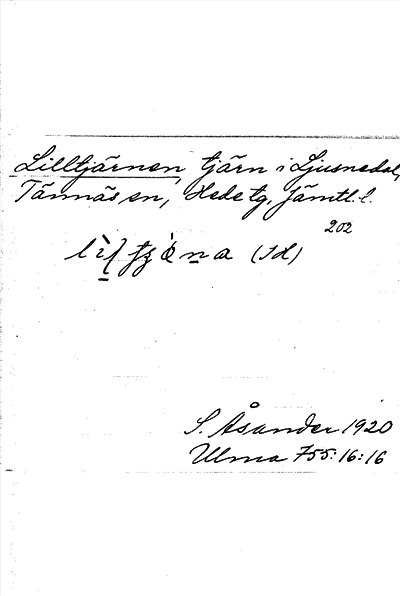 Lilltjärnen, tjärn i Ljusnedal,
Tännäs sn, Hede tg, Jämtl. l.
202
(Id)
S. Åsander 1920
Ulma 755:16:16